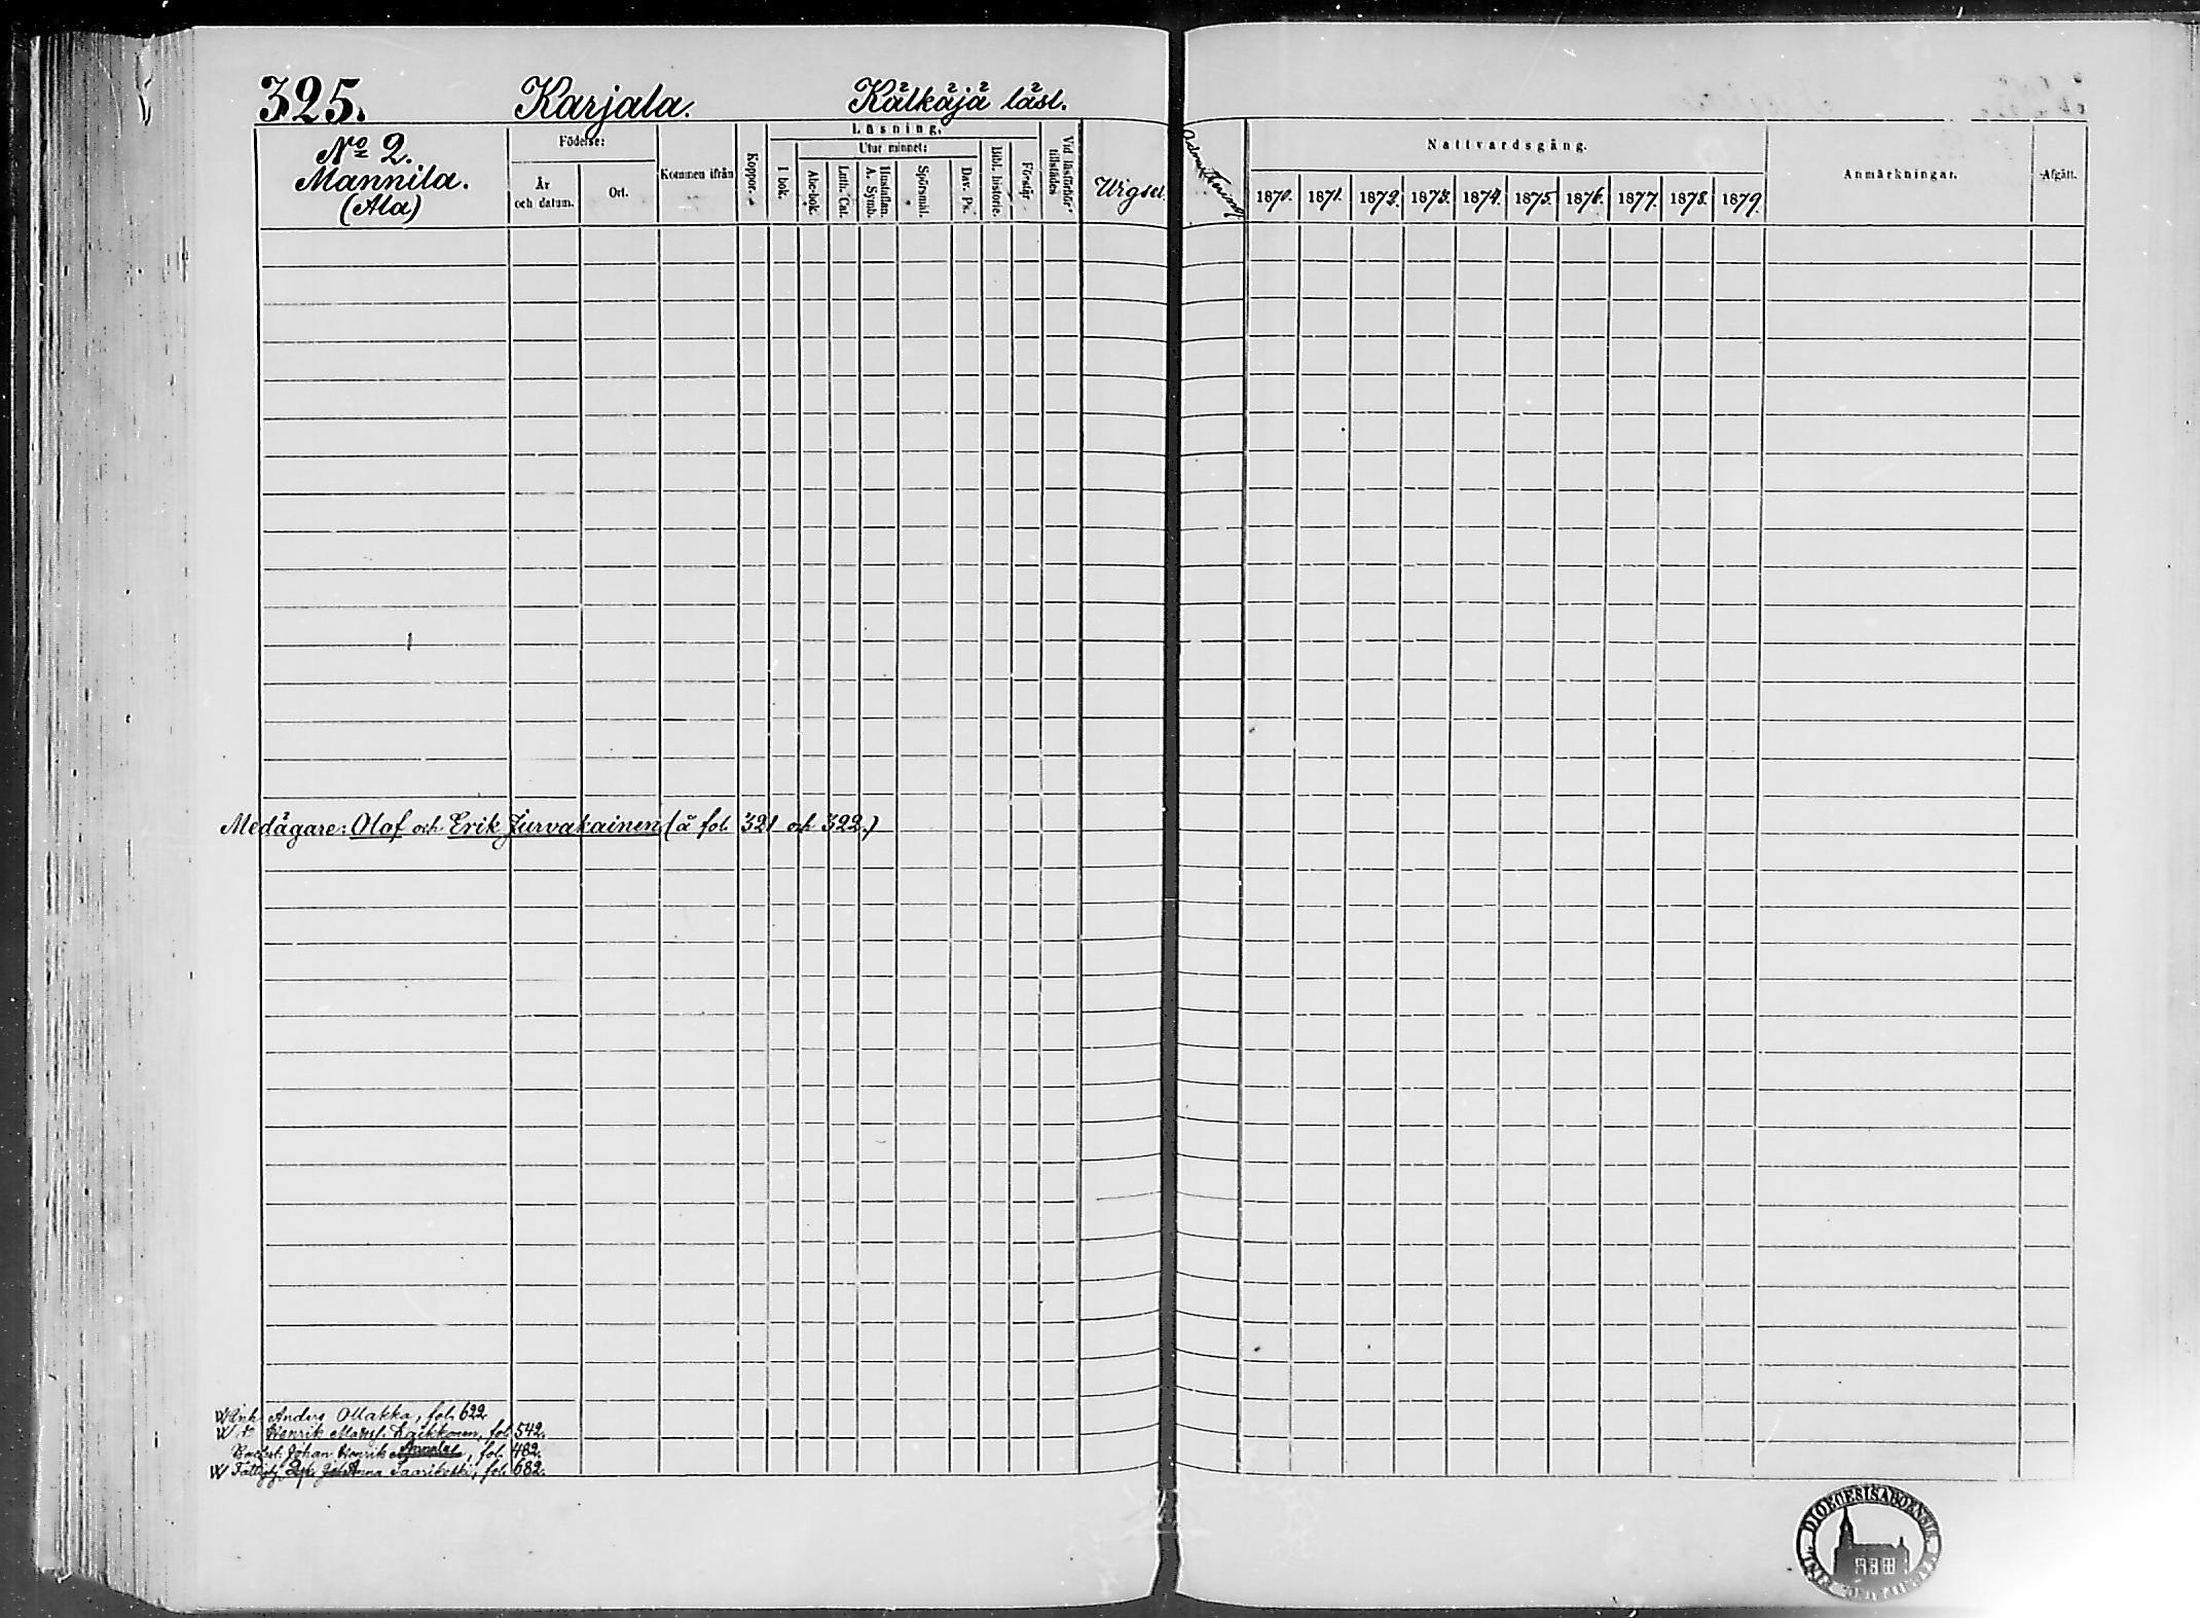 325. Karjala. Kälkäjä läsl.
No 2.
Mannila.
(Ala)
Födelse:
År
och datum.
Ort.
Kommen ifrån
Koppor.
Läsning.
I bok.
Utur minnet:
Abc-bok.
Luth. Cat.
Hustaflan.
A. Symb.
Spörsmål.
Dav. Ps.
Bibl. historie.
Förstår
Vid läsförhör
tillstädes
Wigsel.
Nattvardsgång.
1870. 1871. 1872. 1873. 1874. 1875. 1876. 1877. 1878. 1879.
Anmärkningar.
Afgått.
Medägare: Olaf och Erik Jurvakainen (å fol. 321 och 322.)
Anders Ollakka, fol. 622.
Henrik fol. 542.
Johan Henrik fol. 482.
Anna Saarikoski, fol. 682.
DIOECESIS ABOENSIS